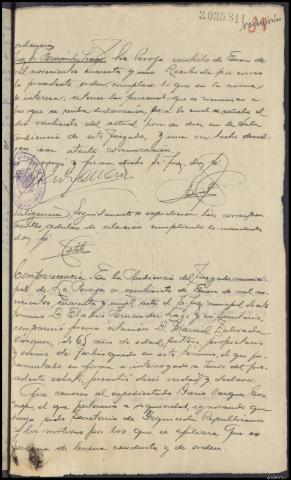 3.035.811
Providencia
Juez Sr. Fernández Lago. La Peroja veintidós de Enero de
mil novecientos cuarenta y uno. Recibida por correo
la precedente orden, cumplase lo que en la misma
se interesa, cítense las personas que se mencionan a
las que se reciba declaración, para la cual se señala el
día veinticinco del actual hora de diez en la Sala
Audiencia de este Juzgado, y una vez hecho devuel-
vase con atenta comunicación.
Lo acordó y firma dicho Sr. Juez, doy fé.
Diligencia. Seguidamente se expidieron las correspon-
dientes cédulas de citación cumpliendo lo mandado
doy fé.
Comparecencia. En la Audiencia del Juzgado munici-
pal de La Peroja a veinticinco de Enero de mil no-
vecientos cuarenta y uno, ante el Sr. Juez municipal de este
término D. Eladio Fernández Lago y mi Secretario,
compareció previa citación D. Marcial Taboada
Vázquez, de 65 años de edad, soltero, propietario
y vecino de en este término, el que ju-
ramentado en forma e interrogado al tenor del prece-
dente exhorto, prometió decir verdad y declara:
Que conoce al expedientado Darío Vázquez
que el pertenecía a izquierdas, ignorando que
haya sido Secretario de Izquierda Republicana
y los motivos por los que se afiliara. Que es
persona de buena conducta y de orden.